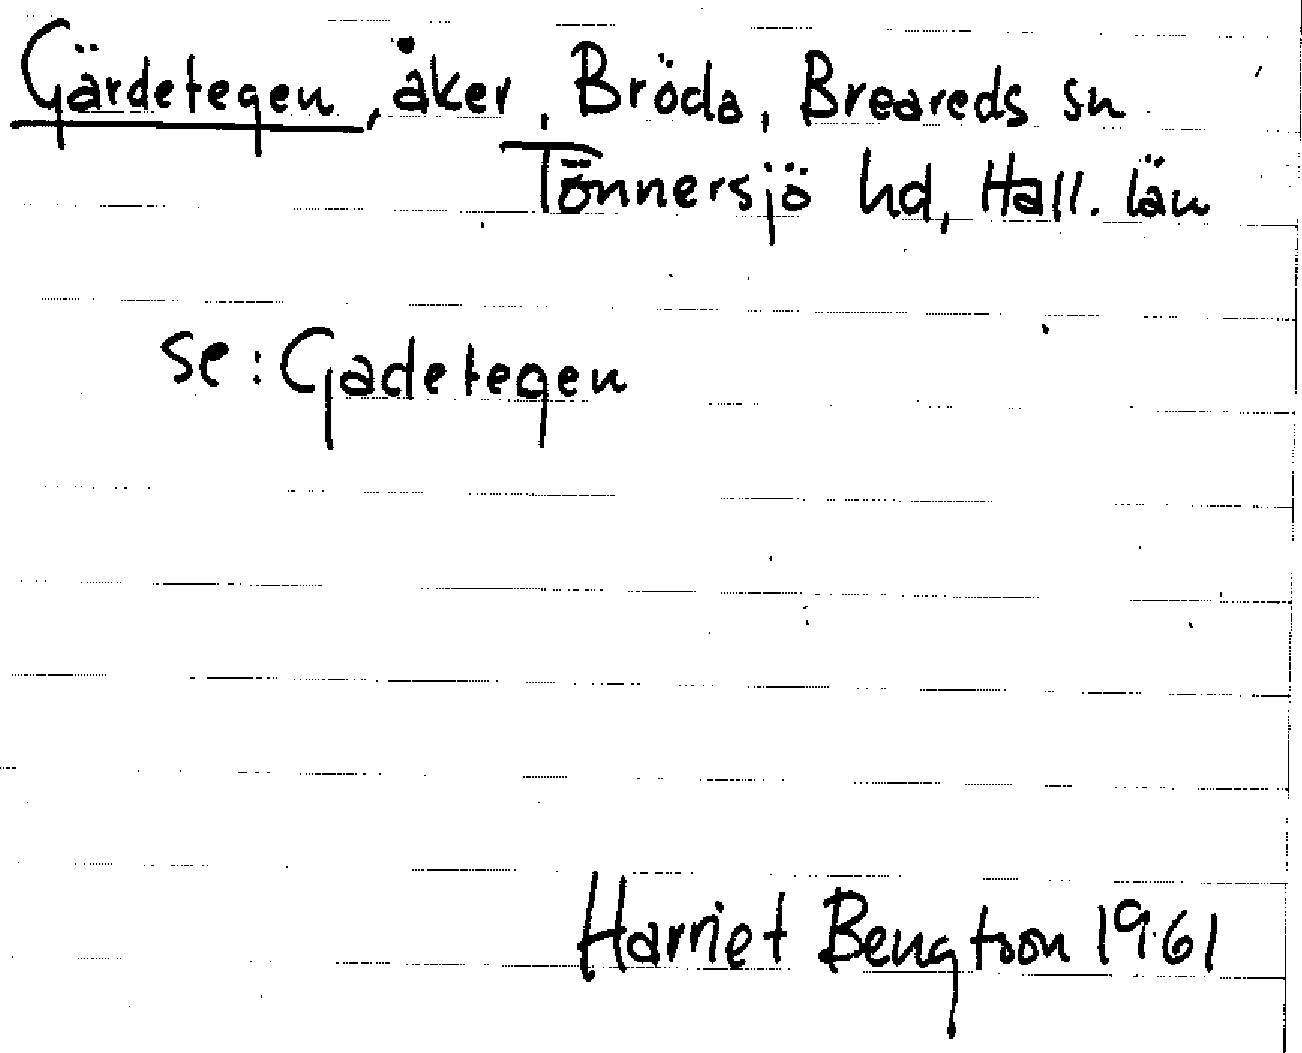 Gärdetegen, åker, Bröda, Breareds sn
Tönnersjö hd, Hall. län
se: Gadetegen
Harriet Bengtson 1961